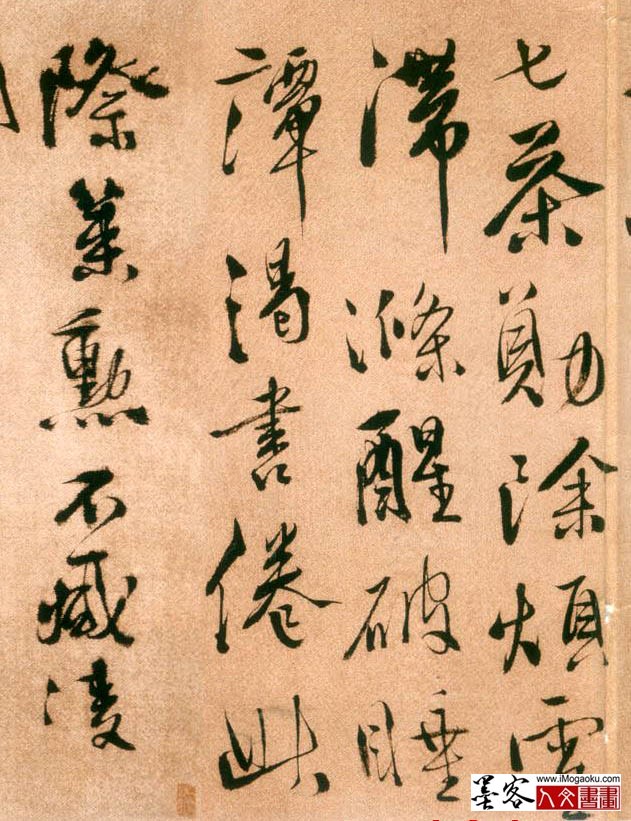 七茶勛除煩雪
滯滌醒破睡
譚渴書倦此
際策勳不減凌
墨客
www.iMogaoku.com
人文書畫